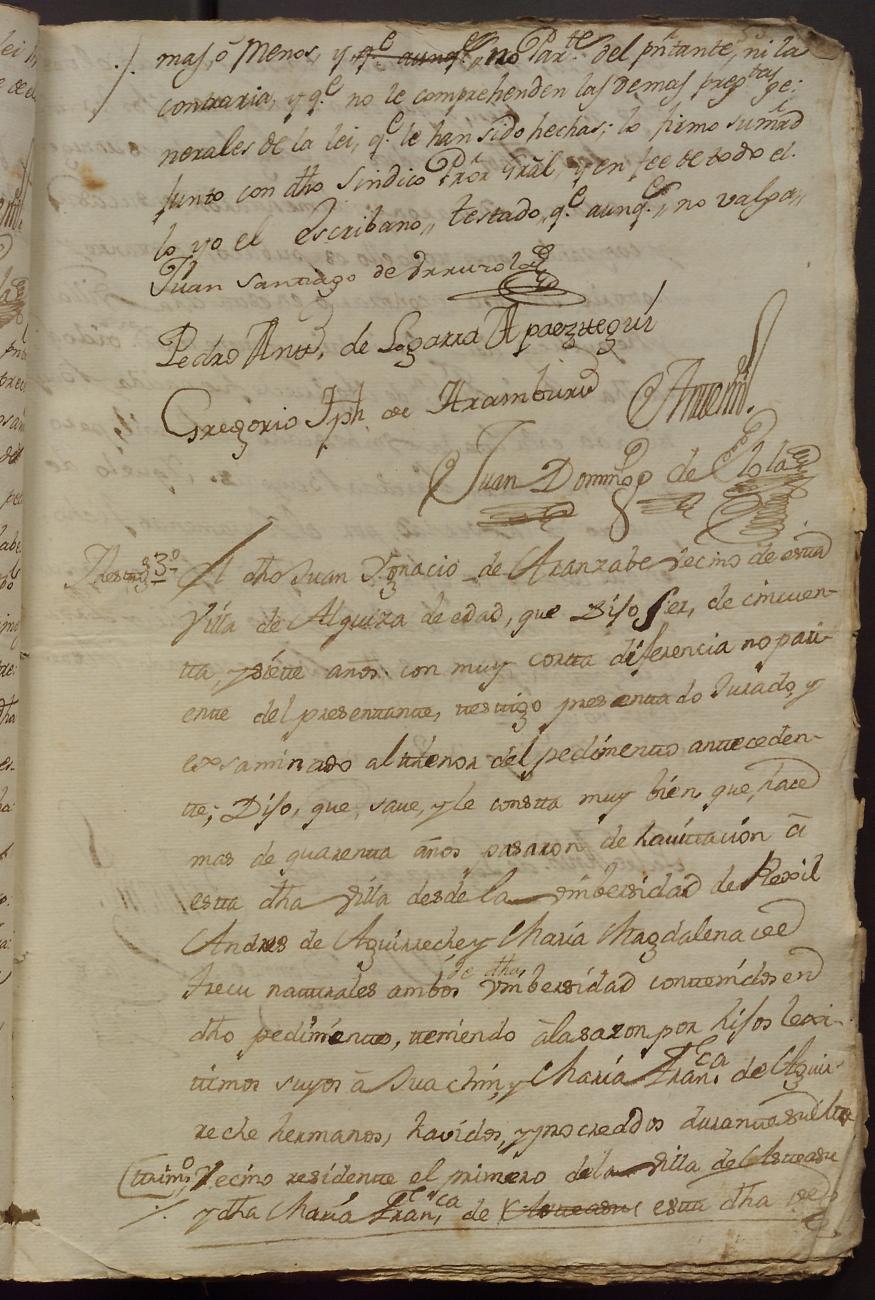 mas, ó menos, y q.e aunq.e no Par.te del pñtante, ni la
contraria, y q.e no le comprehenden las demas preg.tas ge-
nerales de la lei, q.e le han sido hechas; lo firmo sumrd
junto con dho Sindico Pror Gral, y en fee de todo el-
lo yo el Escribano,, testado, q.e aunq.e,, no valga,,
Juan Santiago de Urruzola
Pedro Antt. de Legarra Apaezttegui
Gregorio Jph de Aramburu Antemi.
Juan Domingo de Elola
Testigo 3.o El dho Juan Ygnacio de Aranzabe vecino de estta
Villa de Alquiza de edad, que Dijo ser, de cincuen-
tta, y siette años con muy cortta diferencia no pari-
ente del presenttante, testtigo presenttado Jurado, y
exsaminado al tthenor del pedimentto anttecedente-
tte; Dijo, que, save, y le constta muy bien, que, hace
mas de quarentta años pasaron de havittacion â
estta dha villa desde la Vnibersidad de Rexil
Andres de Aguirreche y Maria Magdalena de
Irecu natturales ambos de dha Vnibersidad conttenidos en
dho pedimentto, tteniendo âla sazon por hijos lexi-
ttimos suyos â Juachin, y Maria Fran.ca de Aguir-
reche hermanos, havidos, y procreados durantte su
ttrim.o, Vecino residentte el primero dela villa de Astteasu
y dha Maria Fran.ca de Astteasu estta dha